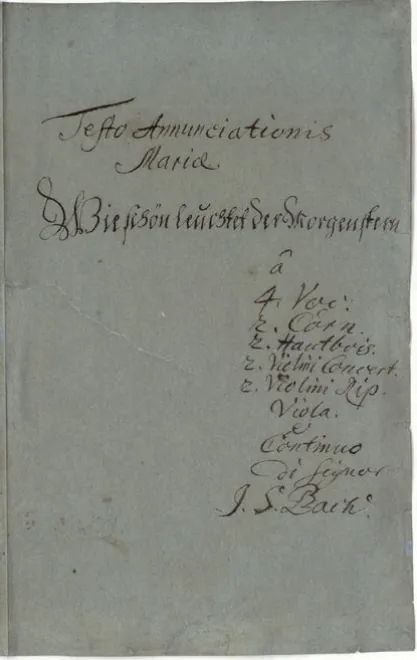 Festo Annunciationis
Mariæ
Wie schön leuchtet der Morgenstern
â
4. Voc:
2. Corn.
2. Hautbois.
2. Violini Concert.
2. Violini Rip.
Viola.
è
Continuo
di Signor
J. S. Bach.